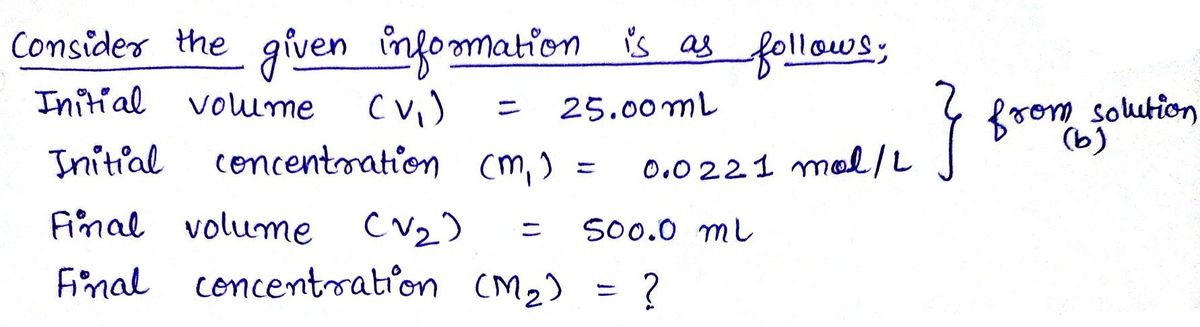 Consider the given information is as follows;
Initial volume (V₁) = 25.00 mL
Initial concentration (M₁) = 0.0221 mol/L } from solution (b)
Final volume (V₂) = 500.0 mL
Final concentration (M₂) = ?